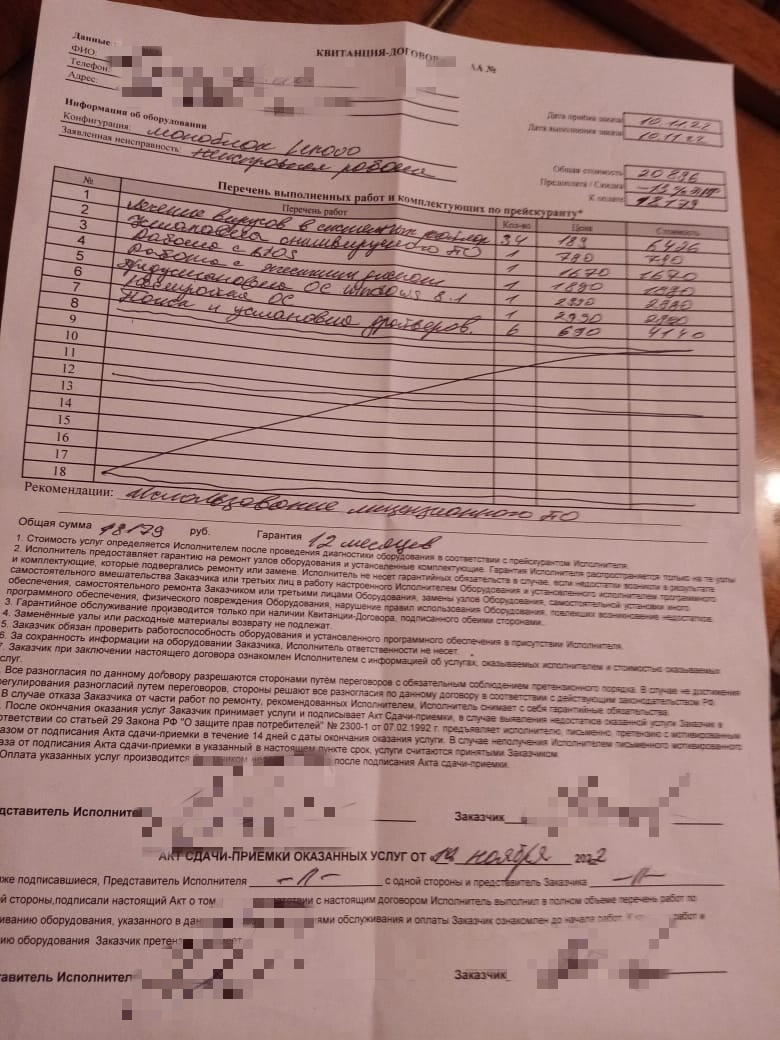 Данные
КВИТАНЦИЯ-ДОГОВОР №
ФИО:
Телефон:
Адрес:
Дата приёма заказа 10.11.22
Дата выполнения заказа 10.11.22
Информация об оборудовании
Конфигурация: моноблок Lenovo
Заявленная неисправность: неисправная работа
Общая стоимость 20896
Предоплата / Скидка -13%
К оплате 18179
Перечень выполненных работ и комплектующих по прейскуранту*
№ Перечень работ Кол-во Цена Стоимость
1 Лечение вирусов в системных файлах 34 189 6426
2 Установка антивирусного ПО 1 790 790
3 Работа с BIOS 1 1670 1670
4 Работа с жестким диском 1 1890
5 ОС Windows 8.1 1 2990
6 ОС 1 2990
7 Поиск и установка драйверов. 6 690 4140
8
9
10
11
12
13
14
15
16
17
18
Рекомендации: Использование лицензионного ПО
Общая сумма 18179 руб. Гарантия 12 месяцев
1. Стоимость услуг определяется Исполнителем после проведения диагностики оборудования в соответствии с прейскурантом Исполнителя.
2. Исполнитель предоставляет гарантию на ремонт узлов оборудования и установленные комплектующие. Гарантия Исполнителя распространяется только на те узлы
и комплектующие, которые подвергались ремонту или замене. Исполнитель не несет гарантийных обязательств в случае, если недостатки возникли в результате
самостоятельного вмешательства Заказчика или третьих лиц в работу настроенного Исполнителем Оборудования и установленного исполнителем программного
обеспечения, самостоятельного ремонта Заказчиком или третьими лицами Оборудования, замены узлов Оборудования, самостоятельной установки иного
программного обеспечения, физического повреждения Оборудования, нарушение правил использования Оборудования, повлекших возникновение недостатков.
3. Гарантийное обслуживание производится только при наличии Квитанции-Договора, подписанного обеими сторонами.
4. Заменённые узлы или расходные материалы возврату не подлежат.
5. Заказчик обязан проверить работоспособность оборудования и установленного программного обеспечения в присутствии Исполнителя.
6. За сохранность информации на оборудовании Заказчика, Исполнитель ответственности не несет.
7. Заказчик при заключении настоящего договора ознакомлен Исполнителем с информацией об услугах, оказываемых исполнителем и стоимостью оказываемых
услуг.
Все разногласия по данному договору разрешаются сторонами путём переговоров с обязательным соблюдением претензионного порядка. В случае не достижения
регулирования разногласий путем переговоров, стороны решают все разногласия по данному договору в соответствии с действующим законодательством РФ.
В случае отказа Заказчика от части работ по ремонту, рекомендованных Исполнителем, Исполнитель снимает с себя гарантийные обязательства.
После окончания оказания услуг Заказчик принимает услуги и подписывает Акт Сдачи-приемки, в случае выявления недостатков оказанной услуги Заказчик в
ответствии со статьей 29 Закона РФ "О защите прав потребителей" № 2300-1 от 07.02.1992 г. предъявляет исполнителю, письменно, претензию с мотивированным
казом от подписания Акта сдачи-приемки в течение 14 дней с даты окончания оказания услуги. В случае неполучения Исполнителем письменного мотивированного
каза от подписания Акта сдачи-приемки в указанный в настоящем пункте срок, услуги считаются принятыми Заказчиком.
Оплата указанных услуг производится после подписания Акта сдачи-приемки.
дставитель Исполнителя Заказчик
АКТ СДАЧИ-ПРИЕМКИ ОКАЗАННЫХ УСЛУГ ОТ ноября 2022
иже подписавшиеся, Представитель Исполнителя -//- с одной стороны и представитель Заказчика -//-
й стороны,подписали настоящий Акт о том с настоящим договором Исполнитель выполнил в полном объеме перечень работ по
иванию оборудования, указанного в обслуживания и оплаты Заказчик ознакомлен до начала работ. работ и
нию оборудования Заказчик
тавитель Исполнителя Заказчик